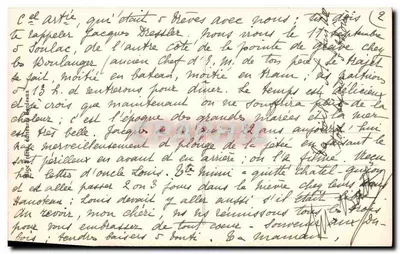 Cel artie, qui était à Trèves avec nous; tu dois (2
te rappeler Jacques Dessler. nous irons le 11
à Soulac, de l'autre côté de la pointe de Grave chez
les Boulanger (ancien chef d' de ton père) le trajet
se fait, moitié en bateau, moitié en tram; as partirons
à 13 h. et rentrerons pour dîner. Le temps est délicieux
et je crois que maintenant on ne souffrira de la
chaleur; c'est l'époque des grandes marées et la mer
est très belle. Jacques a ans aujourd'hui
nage merveilleusement et plonge de la jetée en faisant le
saut périlleux en avant et en arrière; on l'a filmé. Reçu
lettre d'oncle Louis. Tte mimi a quitté chatel-guyon
et est allée passer 2 ou 3 jours dans la nièvre chez leurs
Hanoteau; Louis devait y aller aussi
au revoir, mon chéri, ns ns réunissons tous
pour vous embrasser de tout cœur - souvenirs aux Du-
bois; tendres baisers à Ta maman,